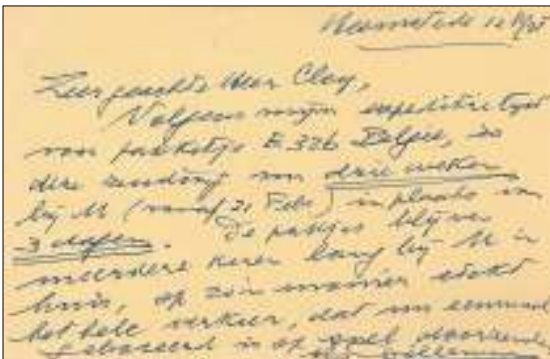 Heemstede 12
Zeer geachte Heer Cley,
Volgens mijn expeditielijst
van pakketje E.326 België, is
deze zending nu drie weken
bij U (vanaf 21 Febr) in plaats van
3 dagen. De pakjes blijven
meerdere keren lang bij U in
huis, op zo'n manier stokt
het hele verkeer, dat nu eenmaal
gebaseerd is op snel doorzenden